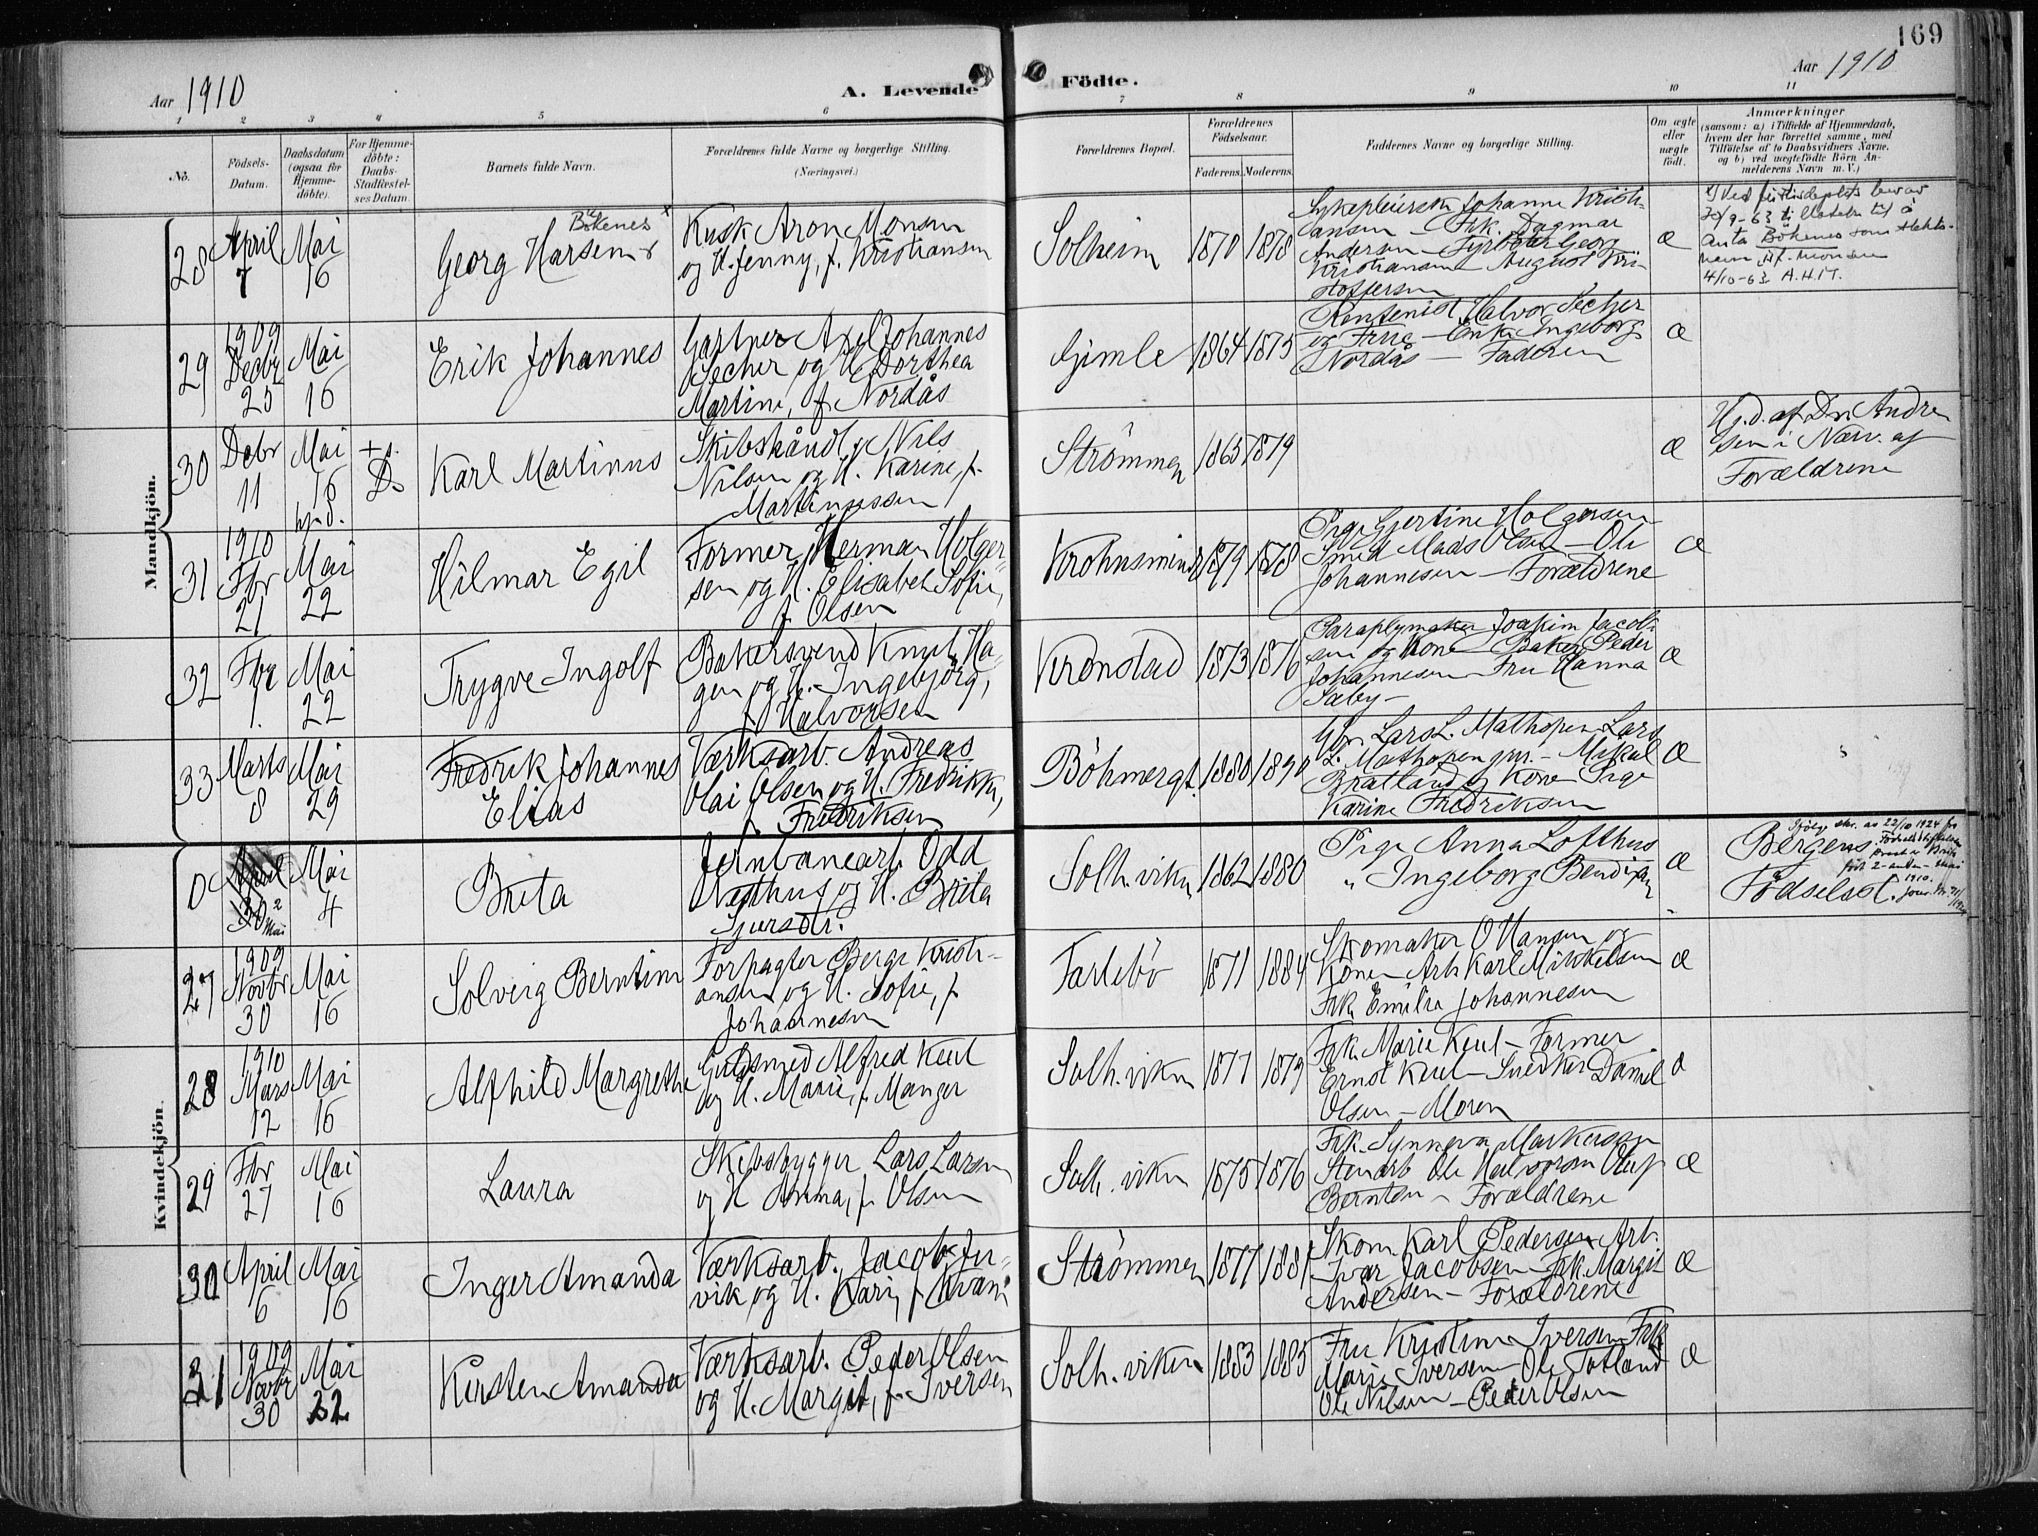 169
Aar 1910
A. Levende Födte.
Aar 1910
1 2 3 4 5 6 7 8 9 10 11
No.
Födsels-Datum.
Daabsdatum (ogsaa for Hjemme-döbte).
For Hjemme-döbte: Daabs-Stadfæstel-ses Datum.
Barnets fulde Navn.
Forældrenes fulde Navne og borgerlige Stilling.
(Næringsvei.)
Forældrenes Bopæl.
Forældrenes Födselsaar.
Faderens. Moderens.
Faddernes Navne og borgerlige Stilling.
Om ægte eller uægte födt.
Anmærkninger
(saasom: a) i Tilfælde af Hjemmedaab,
hvem der har forrettet samme, med
Tilföielse af to Daabsvidners Navne.
og b) ved uægtefödte Börn An-
melderens Navn m. V.)
Mandkjön.
28
April 7
Mai 16
Bökenes x
Georg Harsem
Kusk Aron Monsen
og H. Jenny, f. Kristiansen
Solheim
1870 1878
Sykepleierske Johanne Kristi-
ansen - Frk. Dagmar
Andersen - Fyrböter Georg
Kristiansen - August Kri-
stoffersen
æ
20/9-63 tillatelse til å
anta Bökenes som slekts-
navn Af. Monsen
4/10-63 A.H.T.
29
1909 Decbr 25
Mai 16
Erik Johannes
Gartner Axel Johannes
Secher og H. Dorthea
Martine, f. Nordås
Gimle
1864 1875
Rentenist Halvor Secher
og Frue - Enke Ingeborg
Nordås - Faderen
æ
30
Debr 11
Mai 16 hj. d.
+ s. D.
Karl Martinus
Skibshåndv. Nils
Nilsen og H. Karine, f.
Martinussen
Strömmen
1865 1879
æ
Hj. d. af Dr. Andre
sen i Nærv. af
Forældrene
31
1910 Fbr 21
Mai 22
Hilmar Egil
Former Herman Holger-
sen og H. Elisabet Sofie,
f. Olsen
Krohnsminde
1879 1878
Pige Gjertine Holgersen
Smed Mads Olsen - Ole
Johannesen - Forældrene
æ
32
Fbr 1.
Mai 22
Trygve Ingolf
Bakersvend Knut Ha-
gen og H. Ingebjörg,
f. Halvorsen
Kronstad
1873 1876
Paraplymaker Joakim Jacob-
sen og Kone - Baker Peder
Johannesen - Fru Hanna
Sæby -
æ
33
Marts 8
Mai 29
Fredrik Johannes
Elias
Værksarb. Andreas
Olai Olsen og H. Fredrikke,
f. Fredriksen
Böhmergt.
1880 1890
Lars L. Mathopen Lars
L. Mathopen jun. - Mikal
Bratland og Kone Pige
Karine Fredriksen
æ
Kvindekjön.
0
April 30 2 Mai
Mai 4
Brita
Jernbanearb. Odd
Nesthus og H. Brita
Sjursdtr.
Solh. viken
1862 1880
Pige Anna Lofthus
" Ingeborg Bendixen
æ
Bergens
Födselsst.
22/10 1924
27
1909 Novbr 30
Mai 16
Solveig Berntine
Forpagter Berge Kristi-
ansen og H. Sofie, f.
Johannesen
Fartebö
1871 1884
Skomaker O Hansen og
Kone - Arb Karl Mikkelsen
Frk. Emilie Johannesen
æ
28
1910 Mars 12
Mai 16
Alfhild Margrethe
Guldsmed Alfred Keul
og H. Marie, f. Manger
Solh. viken
1877 1879
Frk. Marie Keul - Former
Ernst Keul - Snedker Daniel
Olsen - Moren
æ
29
Fbr 27
Mai 16
Laura
Skibsbygger Lars Larsen
og H Amma, f. Olsen
Solh. viken
1875 1876
Frk. Synneva Markussen
Stenarb Ole Halvorsen Oluf
Berntsen - Forældrene
æ
30
April 6
Mai 16
Inger Amanda
Værksarb. Jacob
vik og H. Kari, f. Kvam
Strömmen
1877 1881
Skom. Karl Pedersen Arb.
Ivar Jacobsen - Frk. Margit
Andersen - Forældrene
æ
31
1909 Novbr 30
Mai 22
Kirsten Amanda
Værksarb. Peder Olsen
og H. Margit, f. Iversen
Solh. viken
1883 1885
Fru Kristine Iversen Frk
Marie Iversen - Ole Totland
Ole Nilsen - Peder Olsen
æ